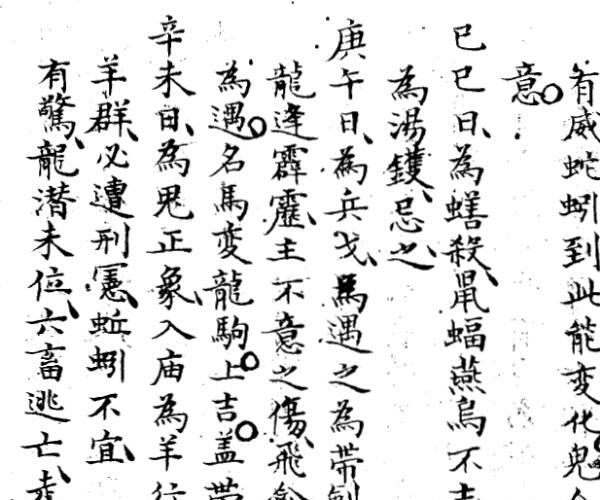 有威蛇蚓到此能变化鬼
意
已巳日為蟮殺鼠蝠燕烏不吉
為湯鑊忌之
庚午日為兵戈馬遇之為带劍
龍逢霹靂主不意之傷飛禽
為遇名馬变龍駒上吉盖带
辛未日為鬼正象入庙為羊行
羊群必遭刑憲蚯蚓不宜
有驚龍潛未位六畜逃亡走